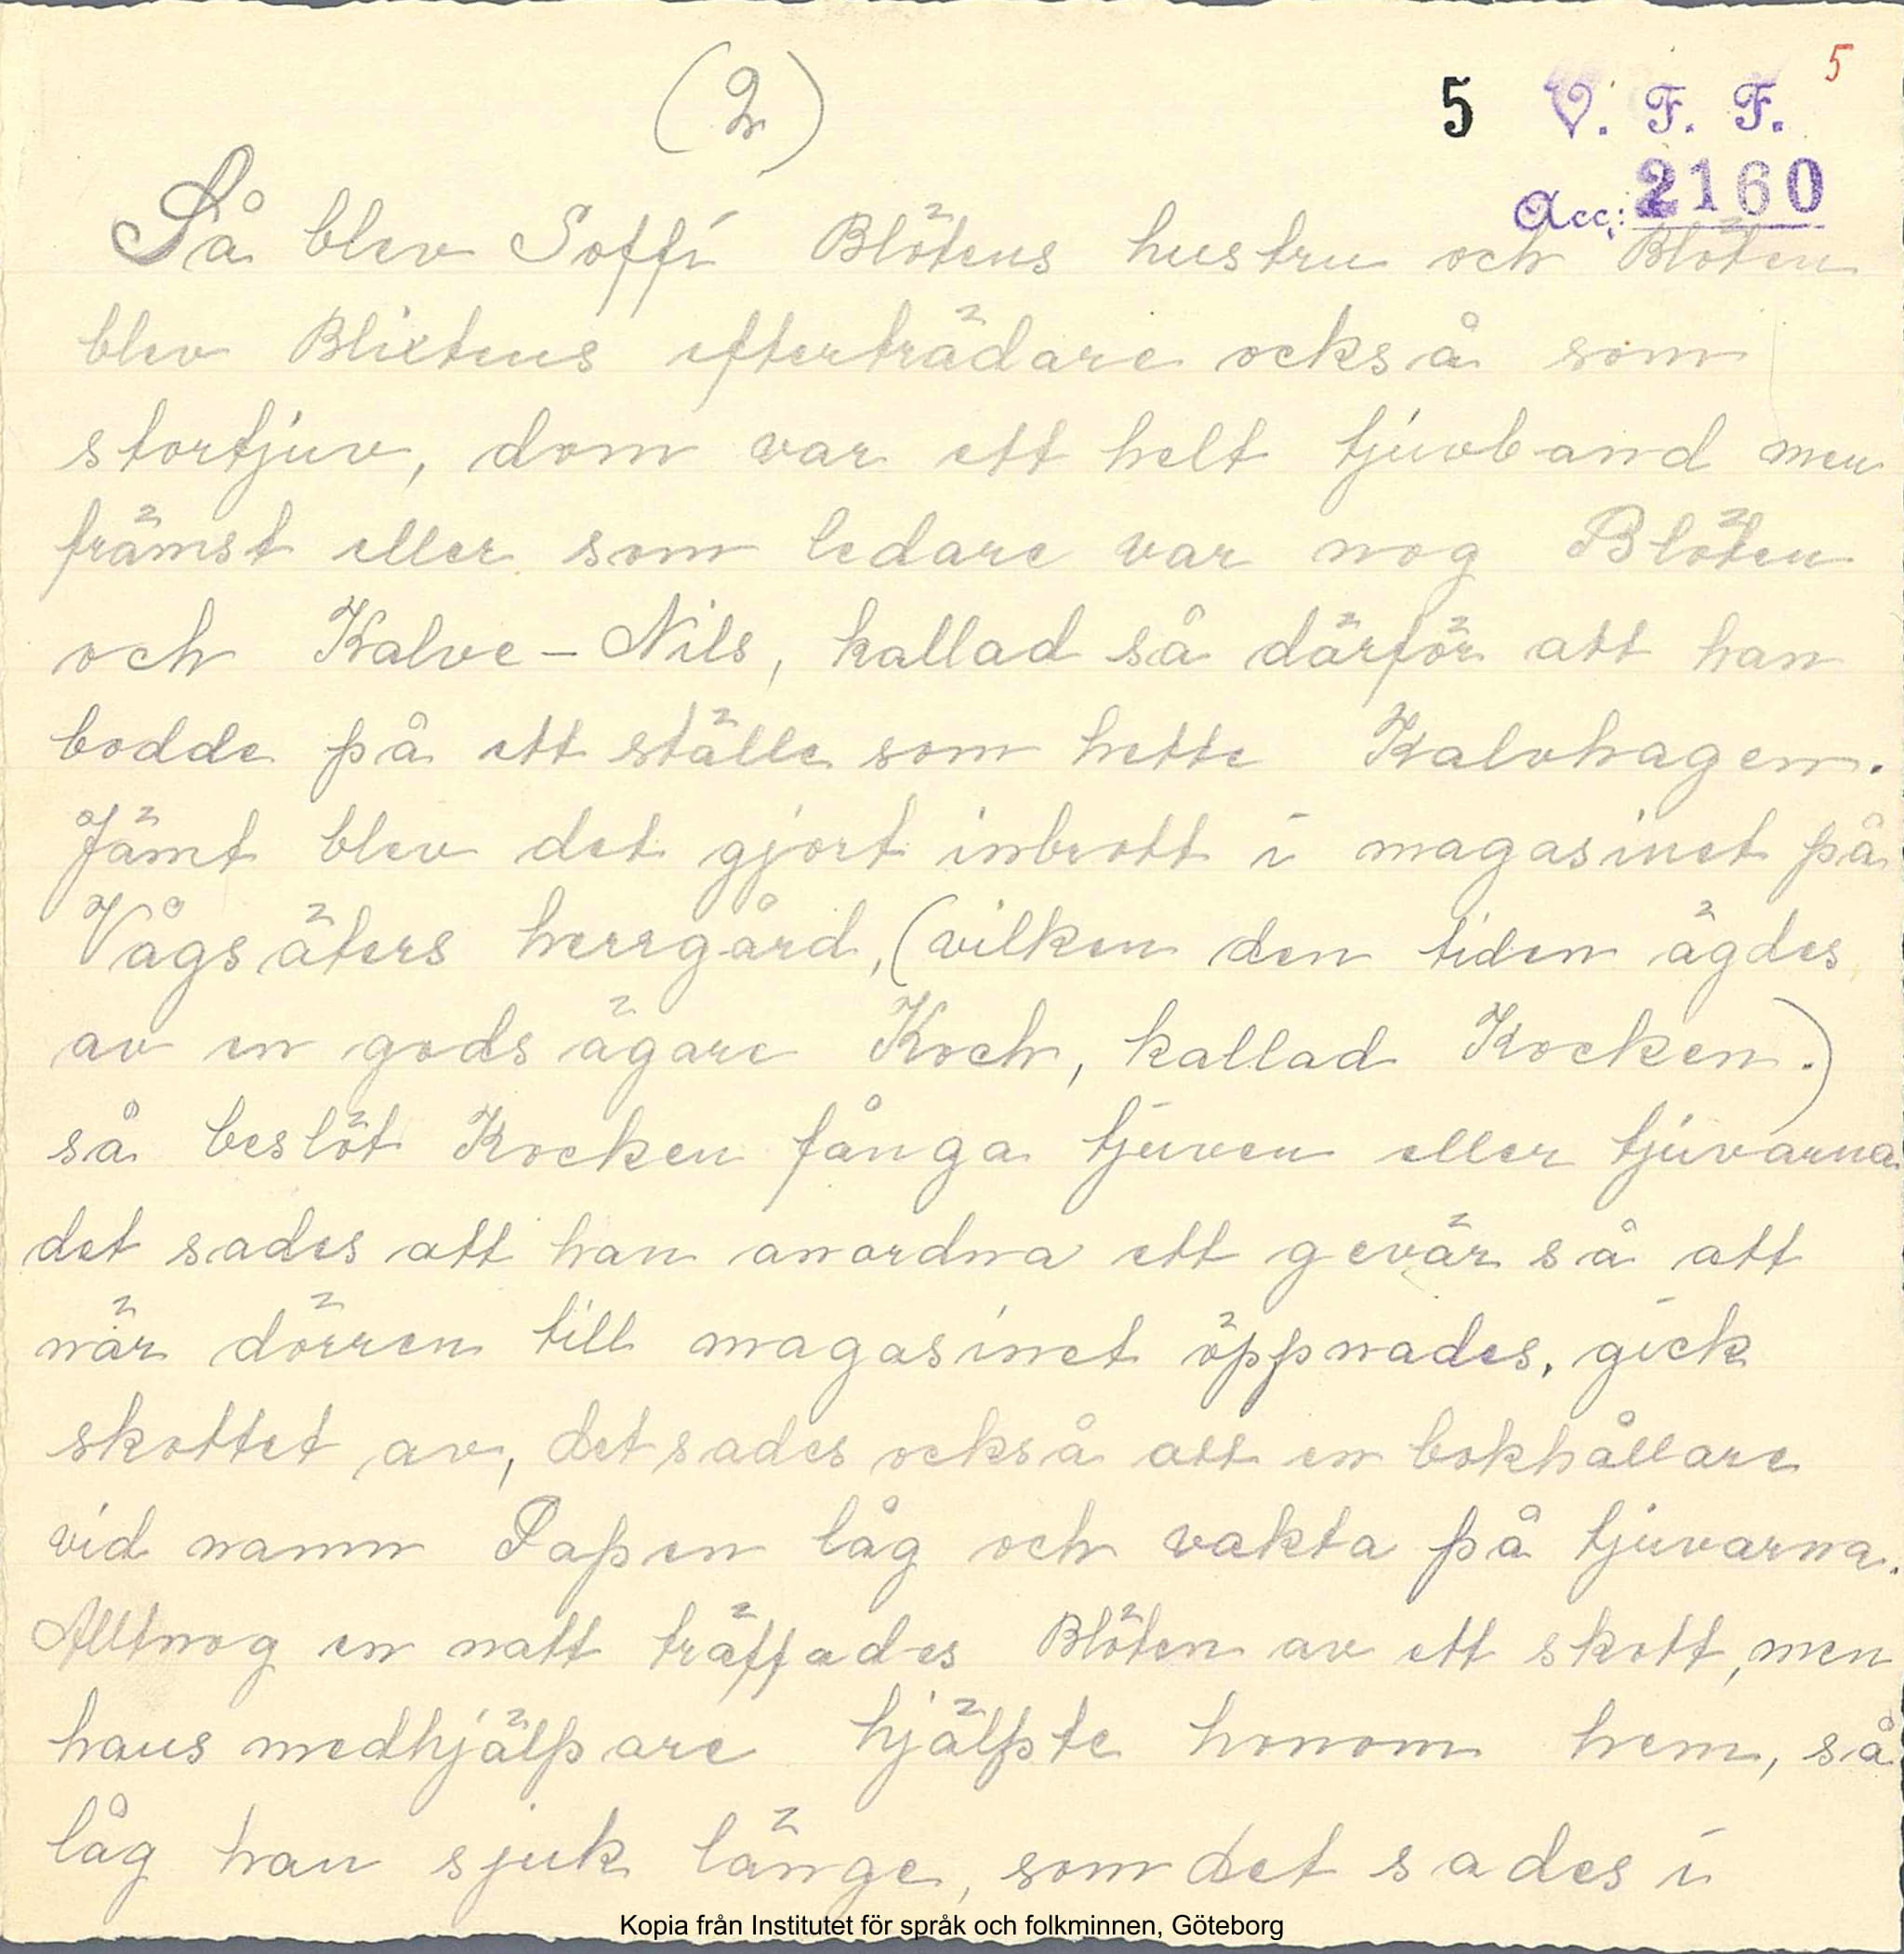 (2)
5 V. F. F. 5
Acc: 2160
Så blev Soffi Blötens hustru och Blöten
blev Blixtens efterträdare också som
stortjuv, dom var ett helt tjuvband men
främst eller som ledare var nog Blöten
och Kalve-Nils, kallad så därför att han
bodde på ett ställe som hette Kalvhagen.
Jämt blev det gjort inbrott i magasinet på
Vågsäters herrgård, (vilken den tiden ägdes
av en godsägare Koch, kallad Kocken.)
så beslöt Kocken fånga tjuven eller tjuvarna
det sades att han anordna ett gevär så att
när dörren till magasinet öppnades, gick
skottet av, det sades också att en bokhållare
vid namn Papen låg och vakta på tjuvarna.
Alltnog en natt träffades Blöten av ett skott, men
hans medhjälpare hjälpte honom hem, så
låg han sjuk länge, som det sades i
Kopia från Institutet för språk och folkminnen, Göteborg